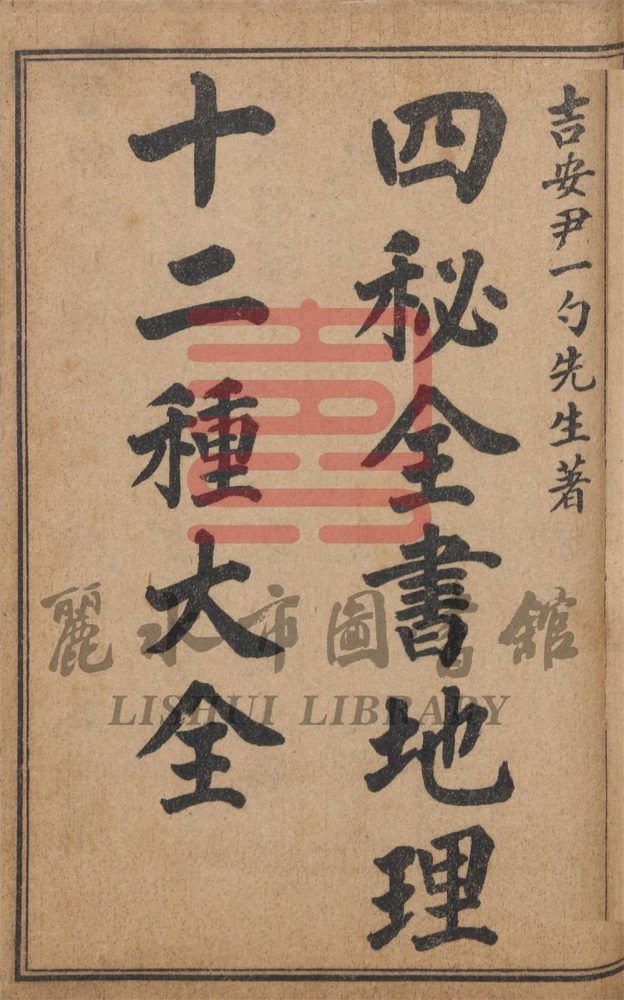 吉安尹一勺先生著
四秘全書地理
十二種大全
麗水市圖書館
LISHUI LIBRARY